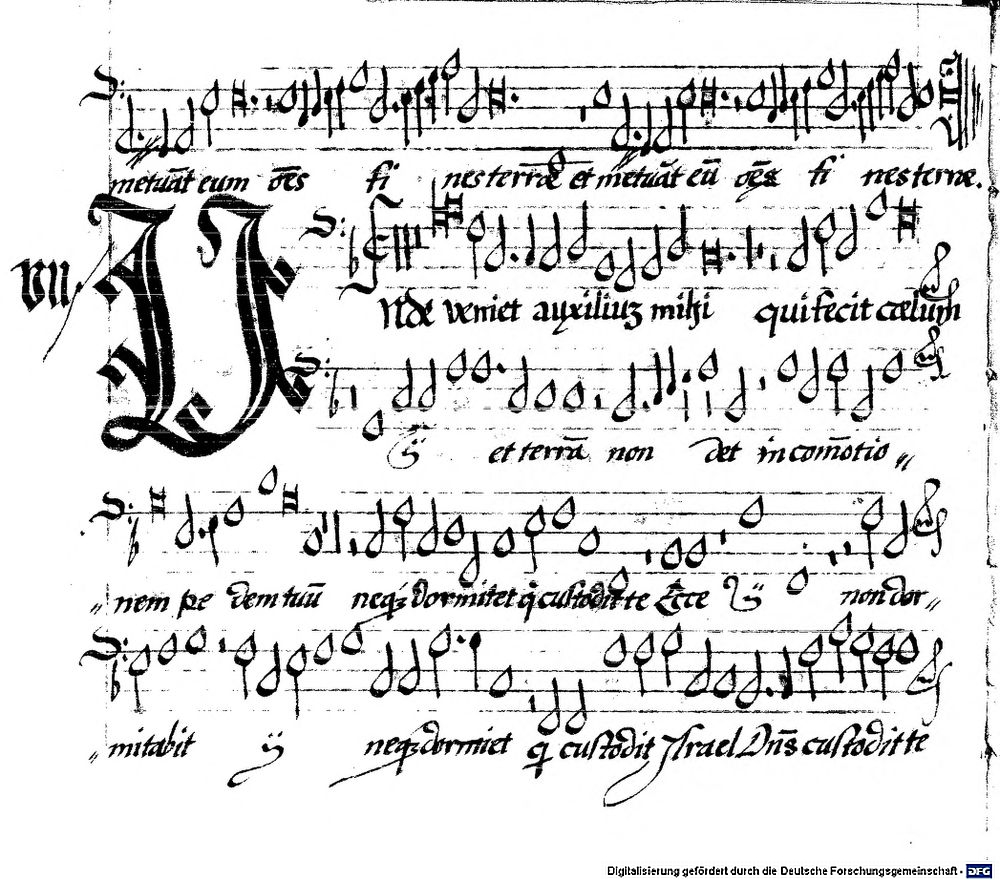 metuāt eum oēs fi nes terræ et metuāt eū oēs fi nes terræ.
vii
Vnde veniet auxiliuʒ mihi qui fecit cælum
ij et terrā non det in com̄otio〃
〃nem pe dem tuū neqʒ dormitet q̇ custodit te Ecce ij non dor〃
〃mitabit ij neqʒ dormiet q̇ custodit Israel Dn̄s custodit te
Digitalisierung gefördert durch die Deutsche Forschungsgemeinschaft - DFG